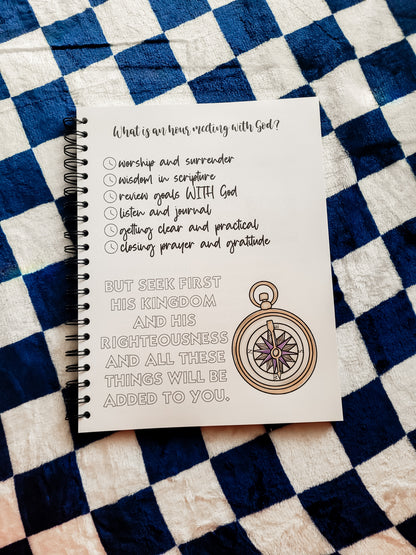 What is an hour meeting with God?
worship and surrender
wisdom in scripture
review goals WITH God
listen and journal
getting clear and practical
closing prayer and gratitude
BUT SEEK FIRST
HIS KINGDOM
AND HIS
RIGHTEOUSNESS
AND ALL THESE
THINGS WILL BE
ADDED TO YOU.